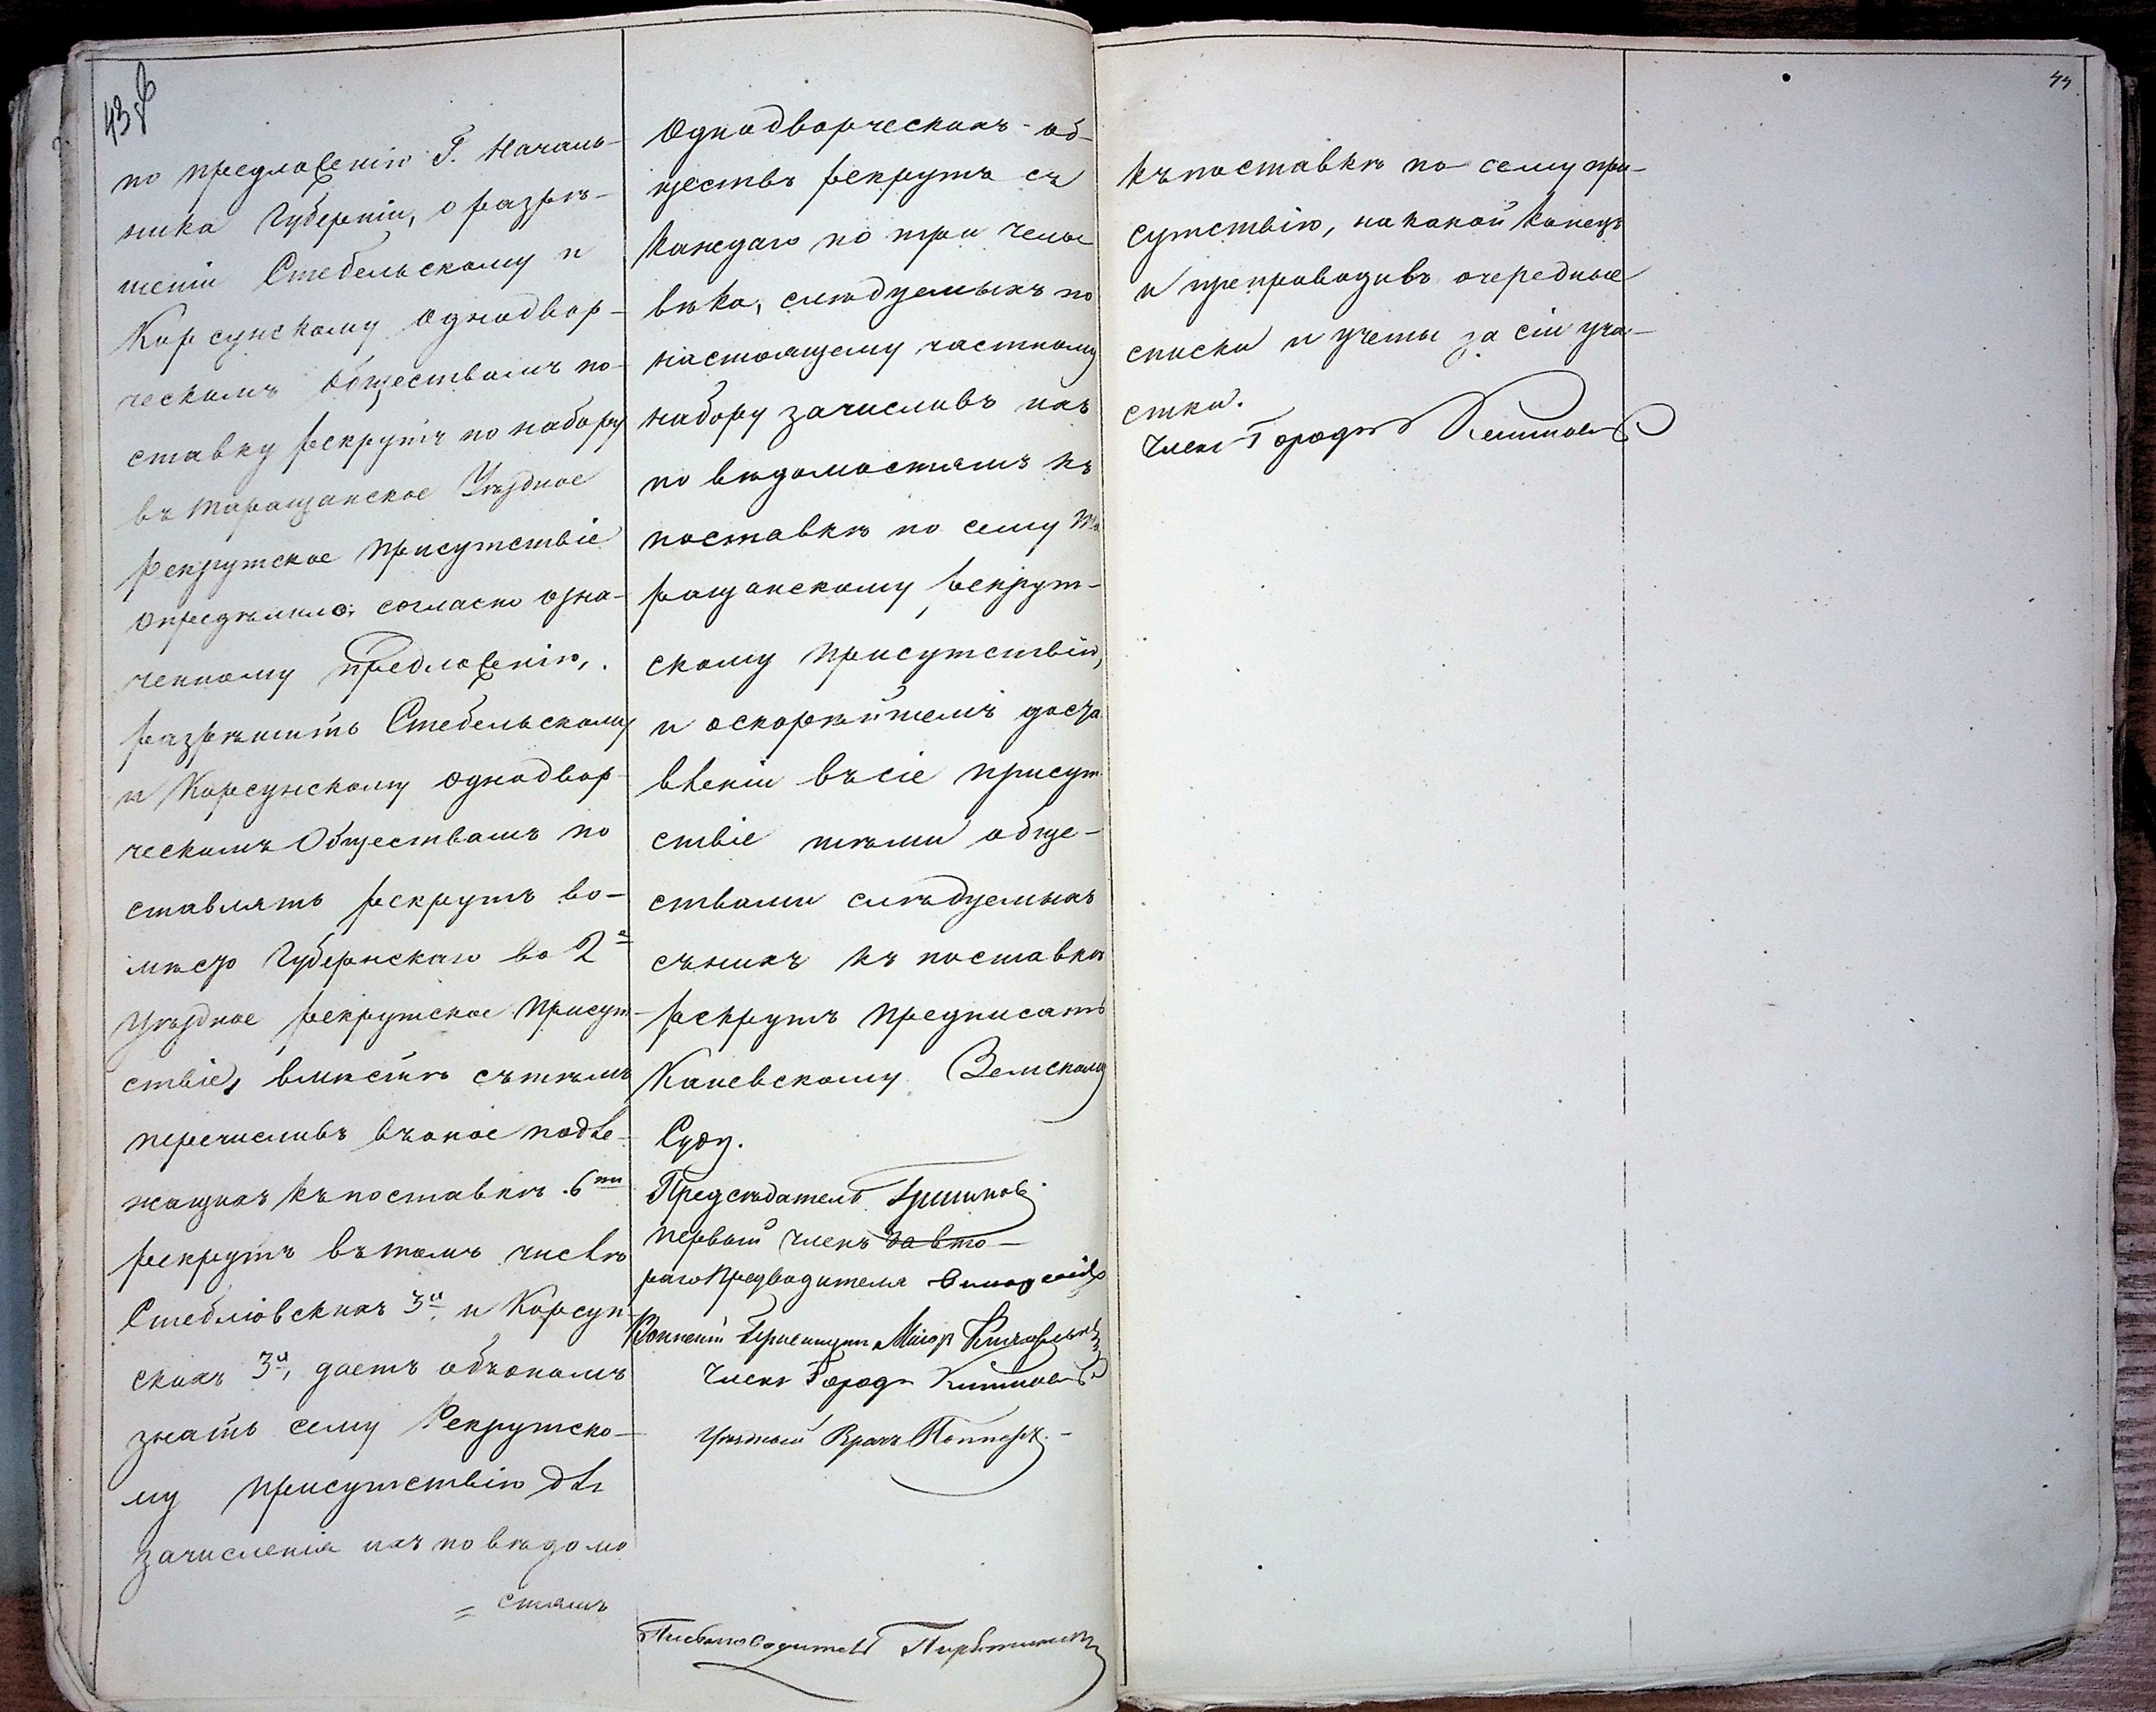 43 об
по предложенію Г. Началь-
ника Губерніи, о разрѣ-
шеніи Стебельскому и
Корсунскому однодвор-
ческимъ обществамъ по-
ставку рекрутъ по набору
въ Таращанское Уѣздное
рекрутское присутствіе
опредѣлило: согласно озна-
ченному предложенію,
разрѣшить Стебельскому
и Корсунскому однодвор-
ческимъ Обществамъ по
ставлять рекрутъ во-
мѣсто Губернскаго во 2е
Уѣздное рекрутское присут-
ствіе, вмѣстѣ съ тѣмъ
перечисливъ въ оное подле-
жащихъ къ поставкѣ 6ти
рекрутъ въ томъ числѣ
Стеблювскихъ 3й и Корсун-
скихъ 3й, даетъ объ ономъ
знать сему Рекрутско-
му присутствію для
зачисленія ихъ по вѣдомо
= стямъ
Однодворческихъ об-
ществъ рекрутъ съ
каждаго по три чело
вѣка, слѣдуемыхъ по
настоящему частному
набору зачисливъ ихъ
по вѣдомостямъ къ
поставкѣ по сему Та
ращанскому рекрут-
скому присутствію,
и о скорѣйшемъ доста
вленіи въ сіе присут
ствіе тѣми обще-
ствами слѣдуемыхъ
съ нихъ къ поставкѣ
рекрутъ предписать
Каневскому Земскому
Суду.
Предсѣдатель
первый членъ за вто-
раго Предводителя
Военный Пріемщикъ Маіоръ
Членъ Городн
Уѣздный Врачъ
Письмоводитель
44
къ поставкѣ по сему при-
сутствію, на какой конецъ
и препроводивъ очередные
списки и учеты за сіи уча-
стки.
Членъ Городн